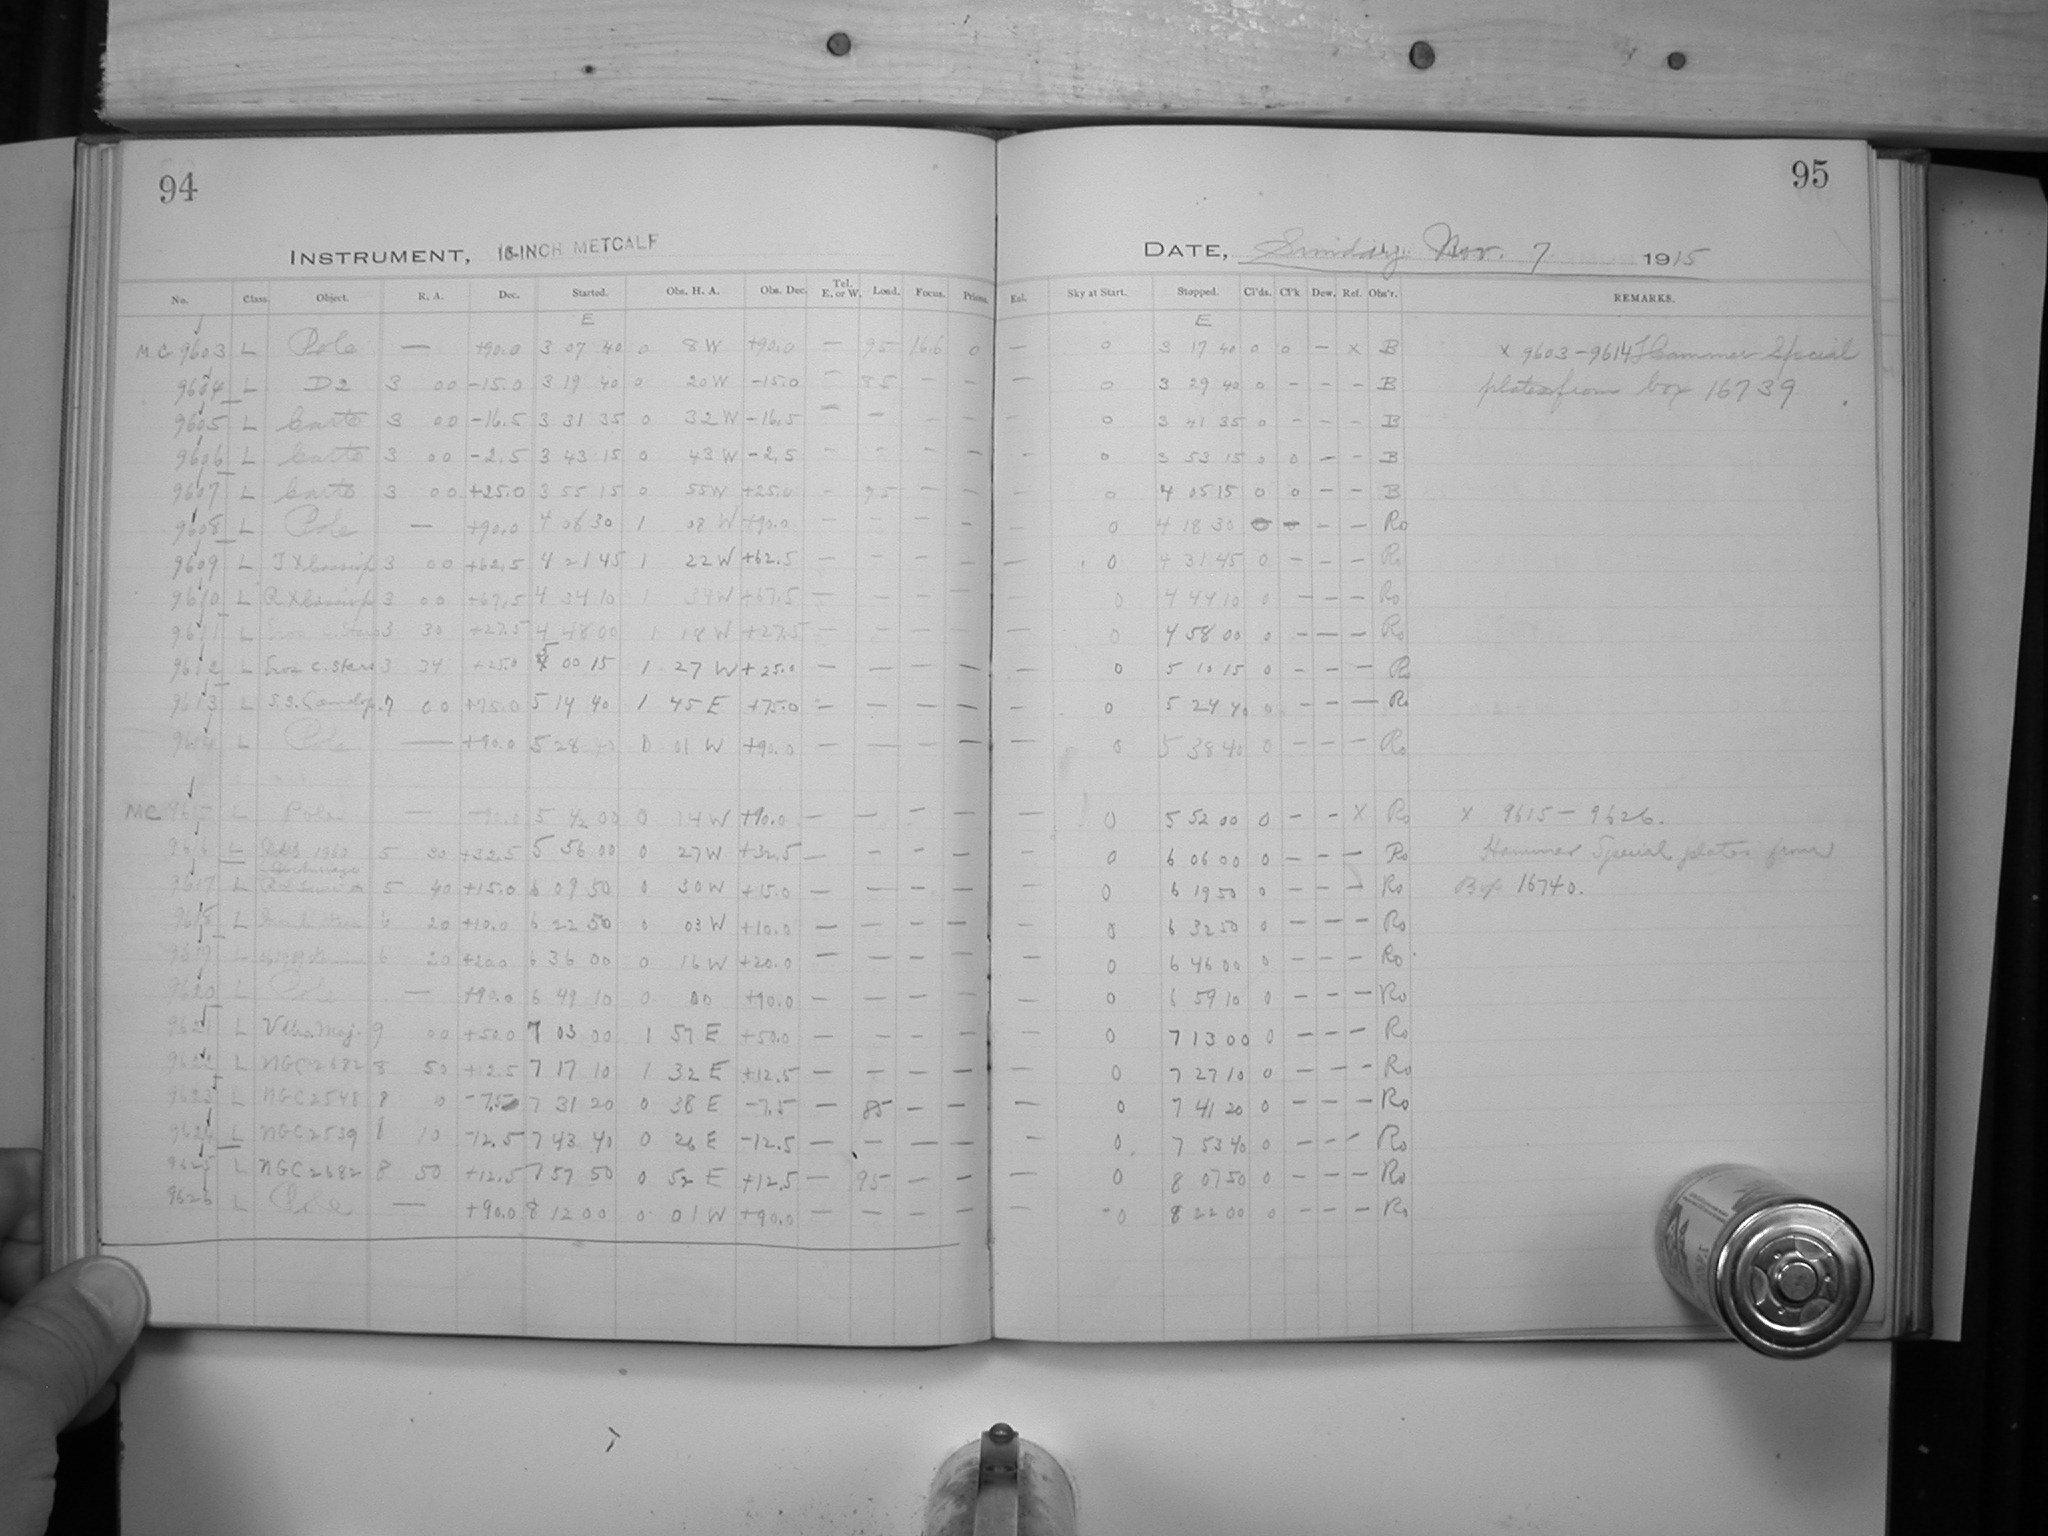 94
95
INSTRUMENT, 16-INCH METCALF
DATE, Sunday. Nov. 7 1915
No. Class. Object. R. A. Dec. Started. Obs. H. A. Obs. Dec. Tel. E. or W. Load. Focus. Prisms. Exl. Sky at Start. Stopped. Cl'ds. Cl'k Dew. Ref. Obs'r. REMARKS.
E E
MC 9603 L Pole — +90.0 3 07 40 0 8 W +90.0 — 95 16.6 0 — 0 3 17 40 0 0 — x B x 9603-9614 Hammer Special
9604 L D2 3 00 -15.0 3 19 40 0 20 W -15.0 — 85 — — — 0 3 29 40 0 - - - B plates from box 16739
9605 L Carte 3 00 -16.5 3 31 35 0 32 W -16.5 — — — — — 0 3 41 35 0 - - - B
9606 L Carte 3 00 -2.5 3 43 15 0 43 W -2.5 - - - - - 0 3 53 15 0 0 - - B
9607 L Carte 3 00 +25.0 3 55 15 0 55 W +25.0 - 95 - - - 0 4 05 15 0 0 - - B
9608 L Pole — +90.0 4 08 30 1 08 W +90.0 — - - - - 0 4 18 30 - - Ro
9609 L 3 00 +62.5 4 21 45 1 22 W +62.5 — - - - - 0 4 31 45 0 - - - Ro
9610 L 3 00 +67.5 4 34 10 1 34 W +67.5 - - - - - 0 4 44 10 0 - - - Ro
9611 L C. Stars 3 30 +27.5 4 48 00 1 18 W +27.5 - - - - - 0 4 58 00 0 - - - Ro
9612 L Eros C. Stars 3 34 +25.0 5 00 15 1 27 W +25.0 - - - - - 0 5 10 15 0 - - - Ro
9613 L S.S. Camelop. 7 00 +75.0 5 14 40 1 45 E +75.0 - - - - - 0 5 24 40 0 - - - Ro
9614 L Pole — +90.0 5 28 40 0 01 W +90.0 - - - - - 0 5 38 40 0 - - - Ro
MC 9615 L Pole — +90.0 5 42 00 0 14 W +90.0 - - - - - 0 5 52 00 0 - - X Ro x 9615 - 9626.
9616 L 5 30 +32.5 5 56 00 0 27 W +32.5 - - - - - 0 6 06 00 0 - - - Ro Hammer Special plates from
9617 L 5 40 +15.0 6 09 50 0 30 W +15.0 - - - - - 0 6 19 50 0 - - - Ro Box 16740.
9618 L 6 20 +10.0 6 22 50 0 03 W +10.0 - - - - - 0 6 32 50 0 - - - Ro
9619 L 6 20 +20.0 6 36 00 0 16 W +20.0 - - - - - 0 6 46 00 0 - - - Ro
9620 L Pole — +90.0 6 49 10 0 00 +90.0 - - - - - 0 6 59 10 0 - - - Ro
9621 L V Urs. Maj. 9 00 +50.0 7 03 00 1 57 E +50.0 - - - - - 0 7 13 00 0 - - - Ro
9622 L NGC 2682 8 50 +12.5 7 17 10 1 32 E +12.5 - - - - - 0 7 27 10 0 - - - Ro
9623 L NGC 2548 8 0 -7.5 7 31 20 0 38 E -7.5 - 85 - - - 0 7 41 20 0 - - - Ro
9624 L NGC 2539 8 10 -12.5 7 43 40 0 26 E -12.5 - - - - - 0 7 53 40 0 - - - Ro
9625 L NGC 2682 8 50 +12.5 7 57 50 0 52 E +12.5 - 95 - - - 0 8 07 50 0 - - - Ro
9626 L Pole — +90.0 8 12 00 0 01 W +90.0 - - - - - 0 8 22 00 0 - - - Ro